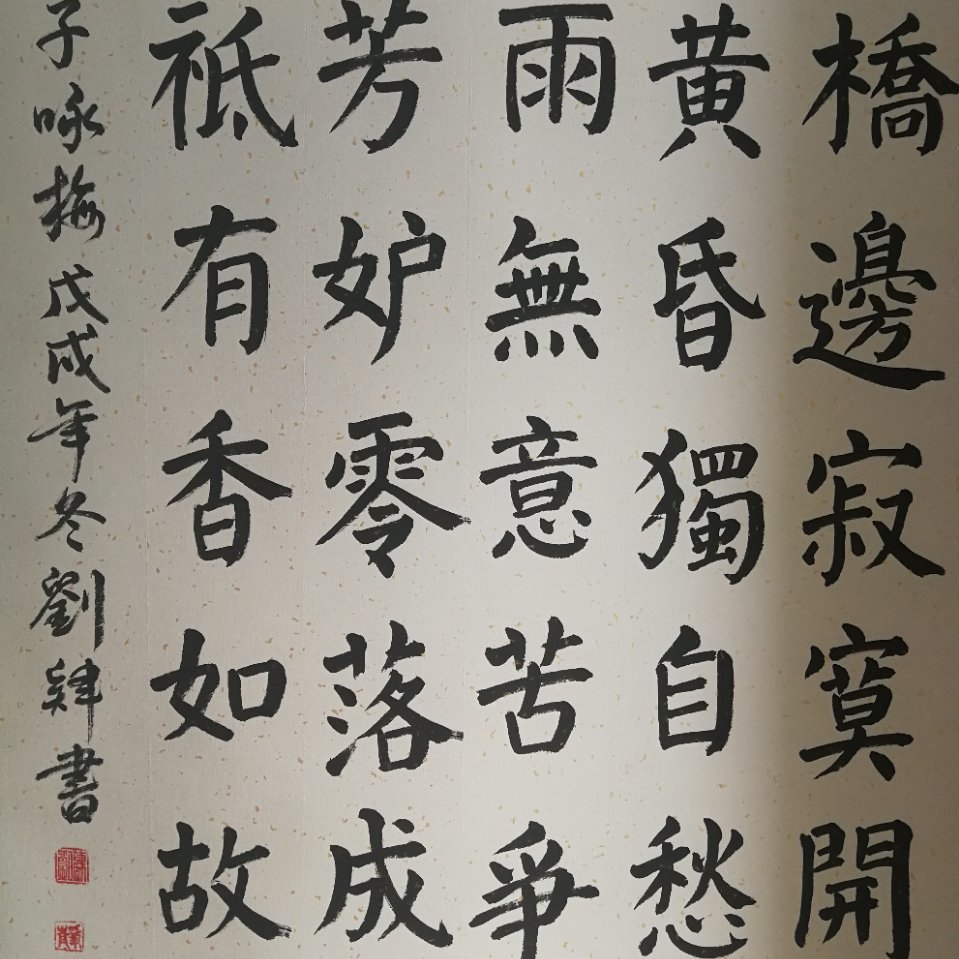 橋邊寂寞開
黃昏獨自愁
雨無意苦爭
芳妒零落成
祗有香如故
子咏梅戊戌年冬劉肄書